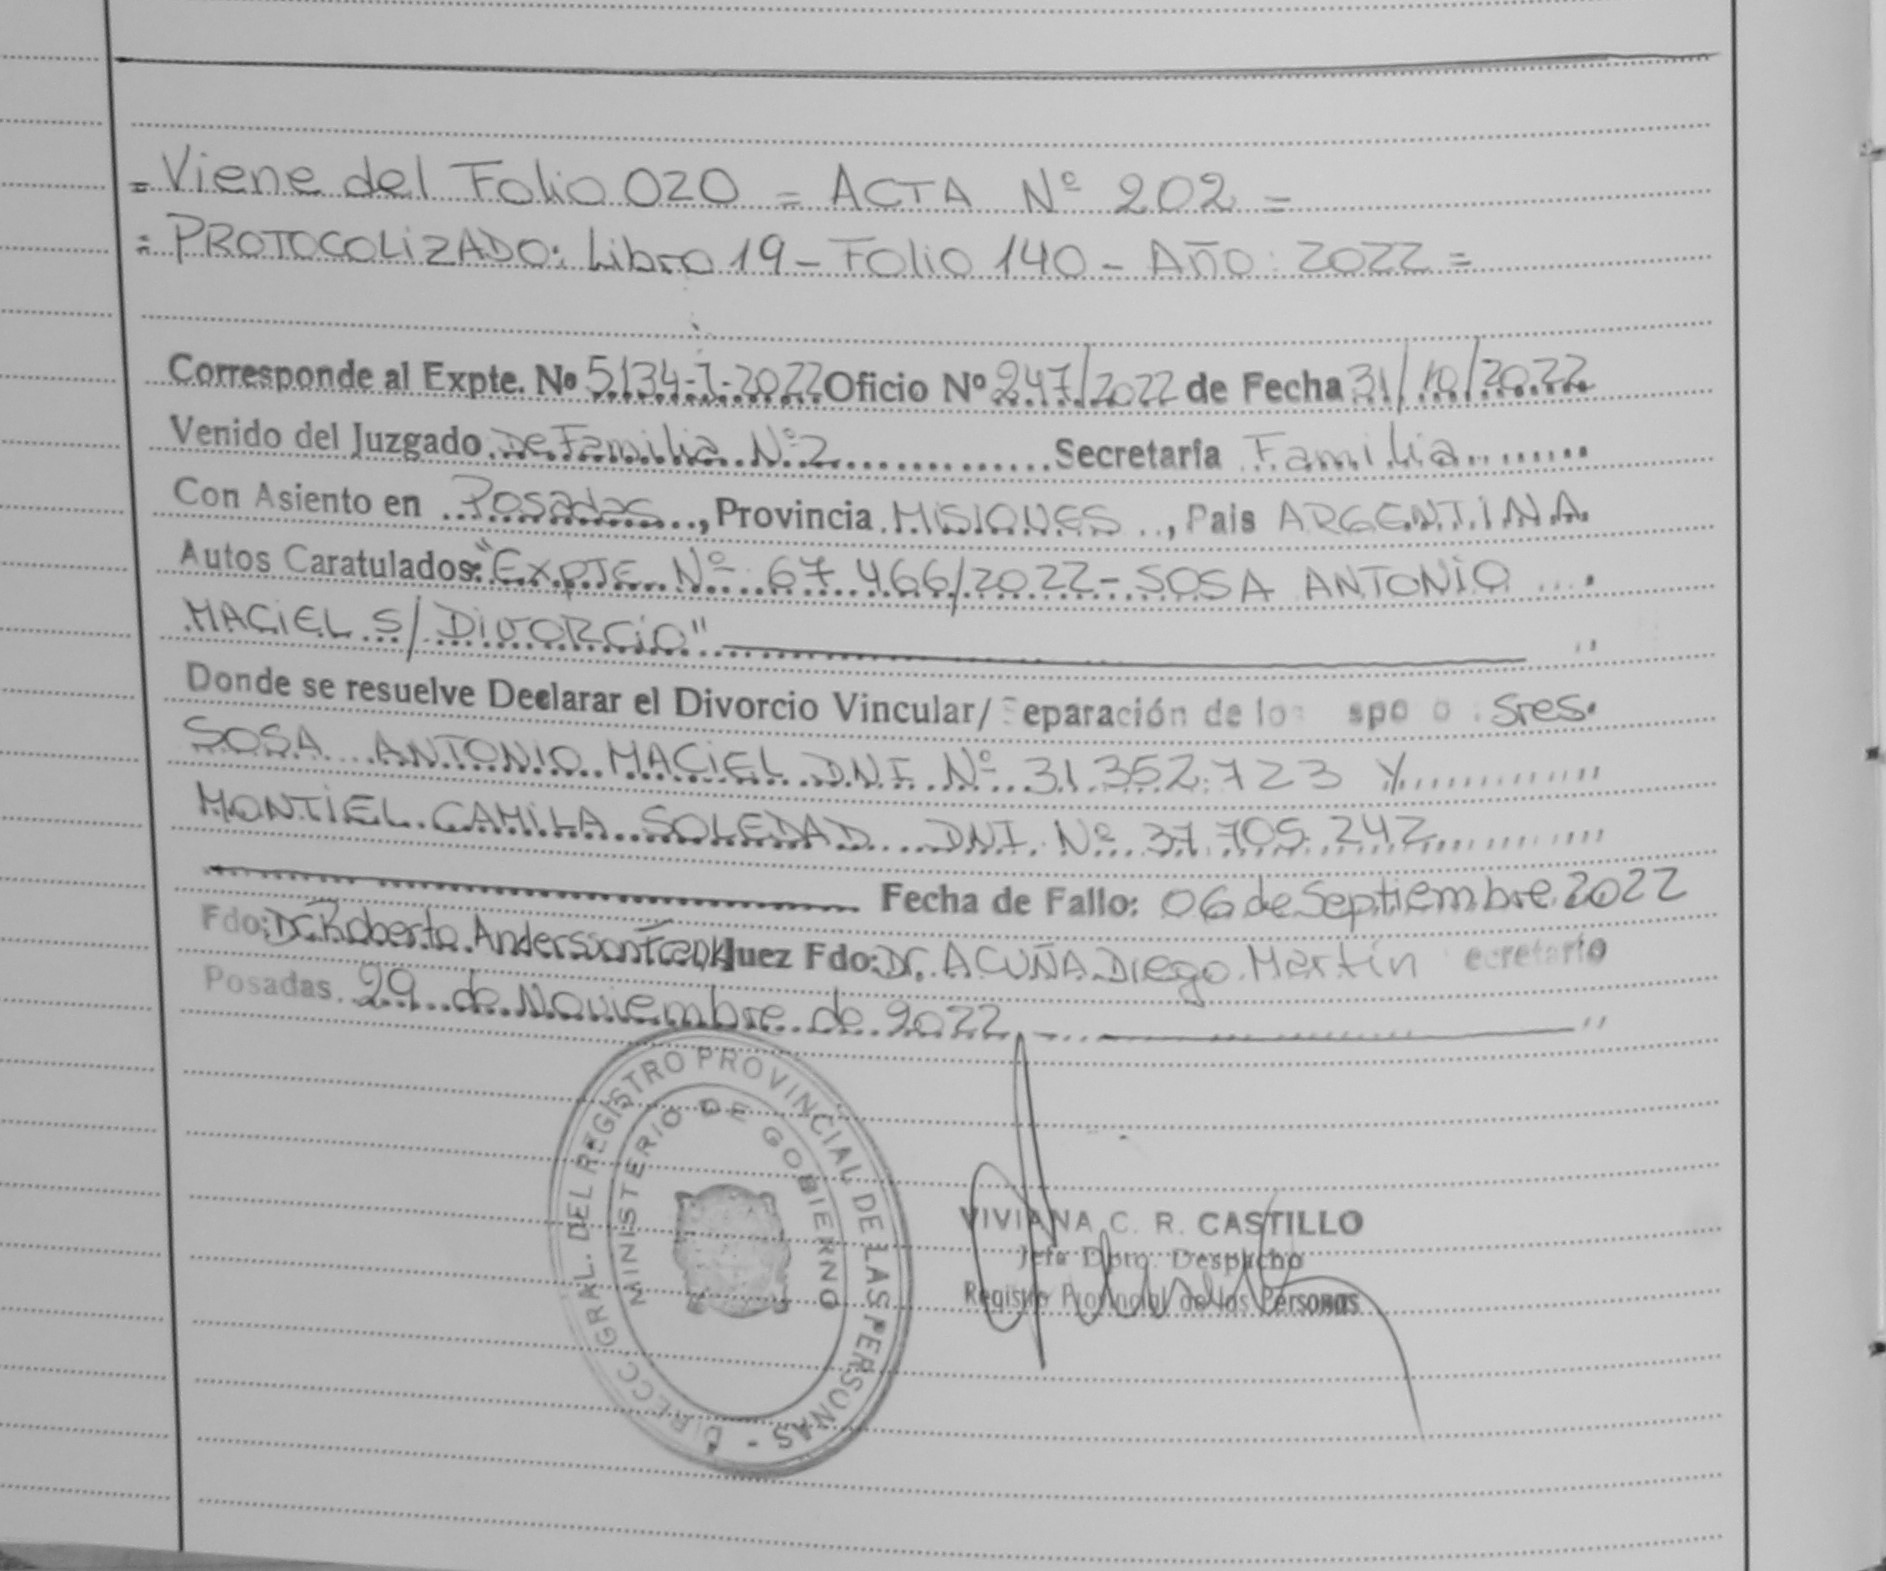 = Viene del Folio 020 = ACTA Nº 202 =
= PROTOCOLIZADO: Libro 19 - Folio 140 - Año: 2022 =
Corresponde al Expte. Nº 5134-J-2022 Oficio Nº 247/2022 de Fecha 31/10/2022
Venido del Juzgado De Familia Nº 2 Secretaría Familia
Con Asiento en Posadas, Provincia MISIONES, Pais ARGENTINA
Autos Caratulados: "EXPTE Nº 67466/2022 - SOSA ANTONIO
MACIEL S/ DIVORCIO"
Donde se resuelve Declarar el Divorcio Vincular/ Separación de los Sres.
SOSA ANTONIO MACIEL DNI Nº 31.352.723 Y
MONTIEL CAMILA SOLEDAD DNI Nº 37.705.242
Fecha de Fallo: 06 de Septiembre 2022
Fdo: Dr. Roberto Andersson Juez Fdo: Dr. ACUÑA Diego Martín ecretario
Posadas 29 de Noviembre de 2022
DIRECC. GRAL. DEL REGISTRO PROVINCIAL DE LAS PERSONAS -
MINISTERIO DE GOBIERNO
VIVIANA C. R. CASTILLO
Jefa Dpto. Despacho
Registro Provincial de las Personas